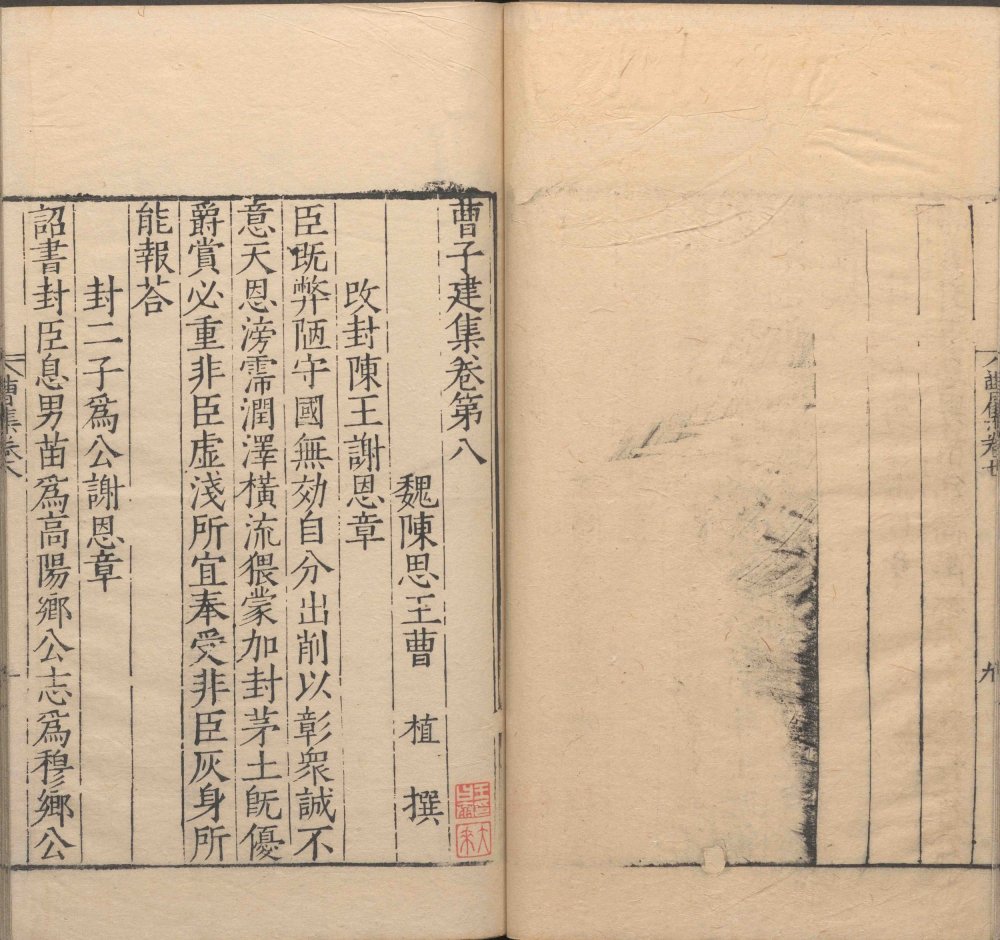 九
曹子建集卷第八
魏陳思王曹 植 撰
改封陳王謝恩章
臣既弊陋守國無効自分出削以彰衆誠不
意天恩滂霈潤澤橫流猥蒙加封茅土既優
爵賞必重非臣虛淺所宜奉受非臣灰身所
能報荅
封二子爲公謝恩章
詔書封臣息男苗爲高陽鄉公志爲穆鄉公
曹集卷八
一